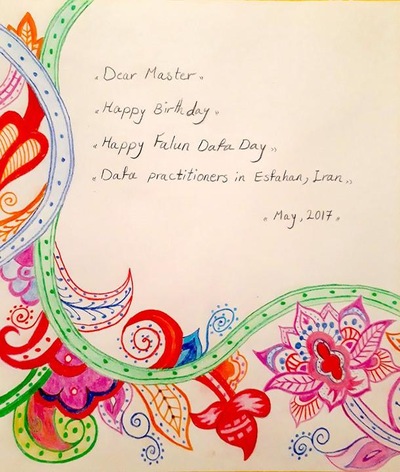 "Dear Master"
"Happy Birthday"
"Happy Falun Dafa Day"
"Dafa practitioners in Esfahan, Iran"
"May, 2017"